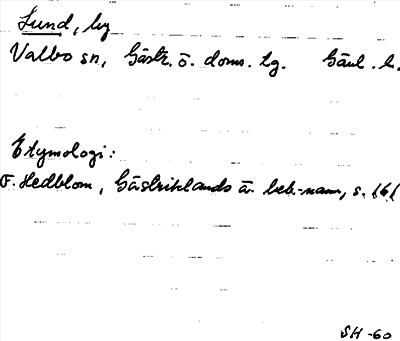 Lund, by
Valbo sn, Gästr. ö. doms. tg. Gävl. l.
Etymologi:
F. Hedblom, Gästriklands ä. beb.-namn, s. 161
SH -60